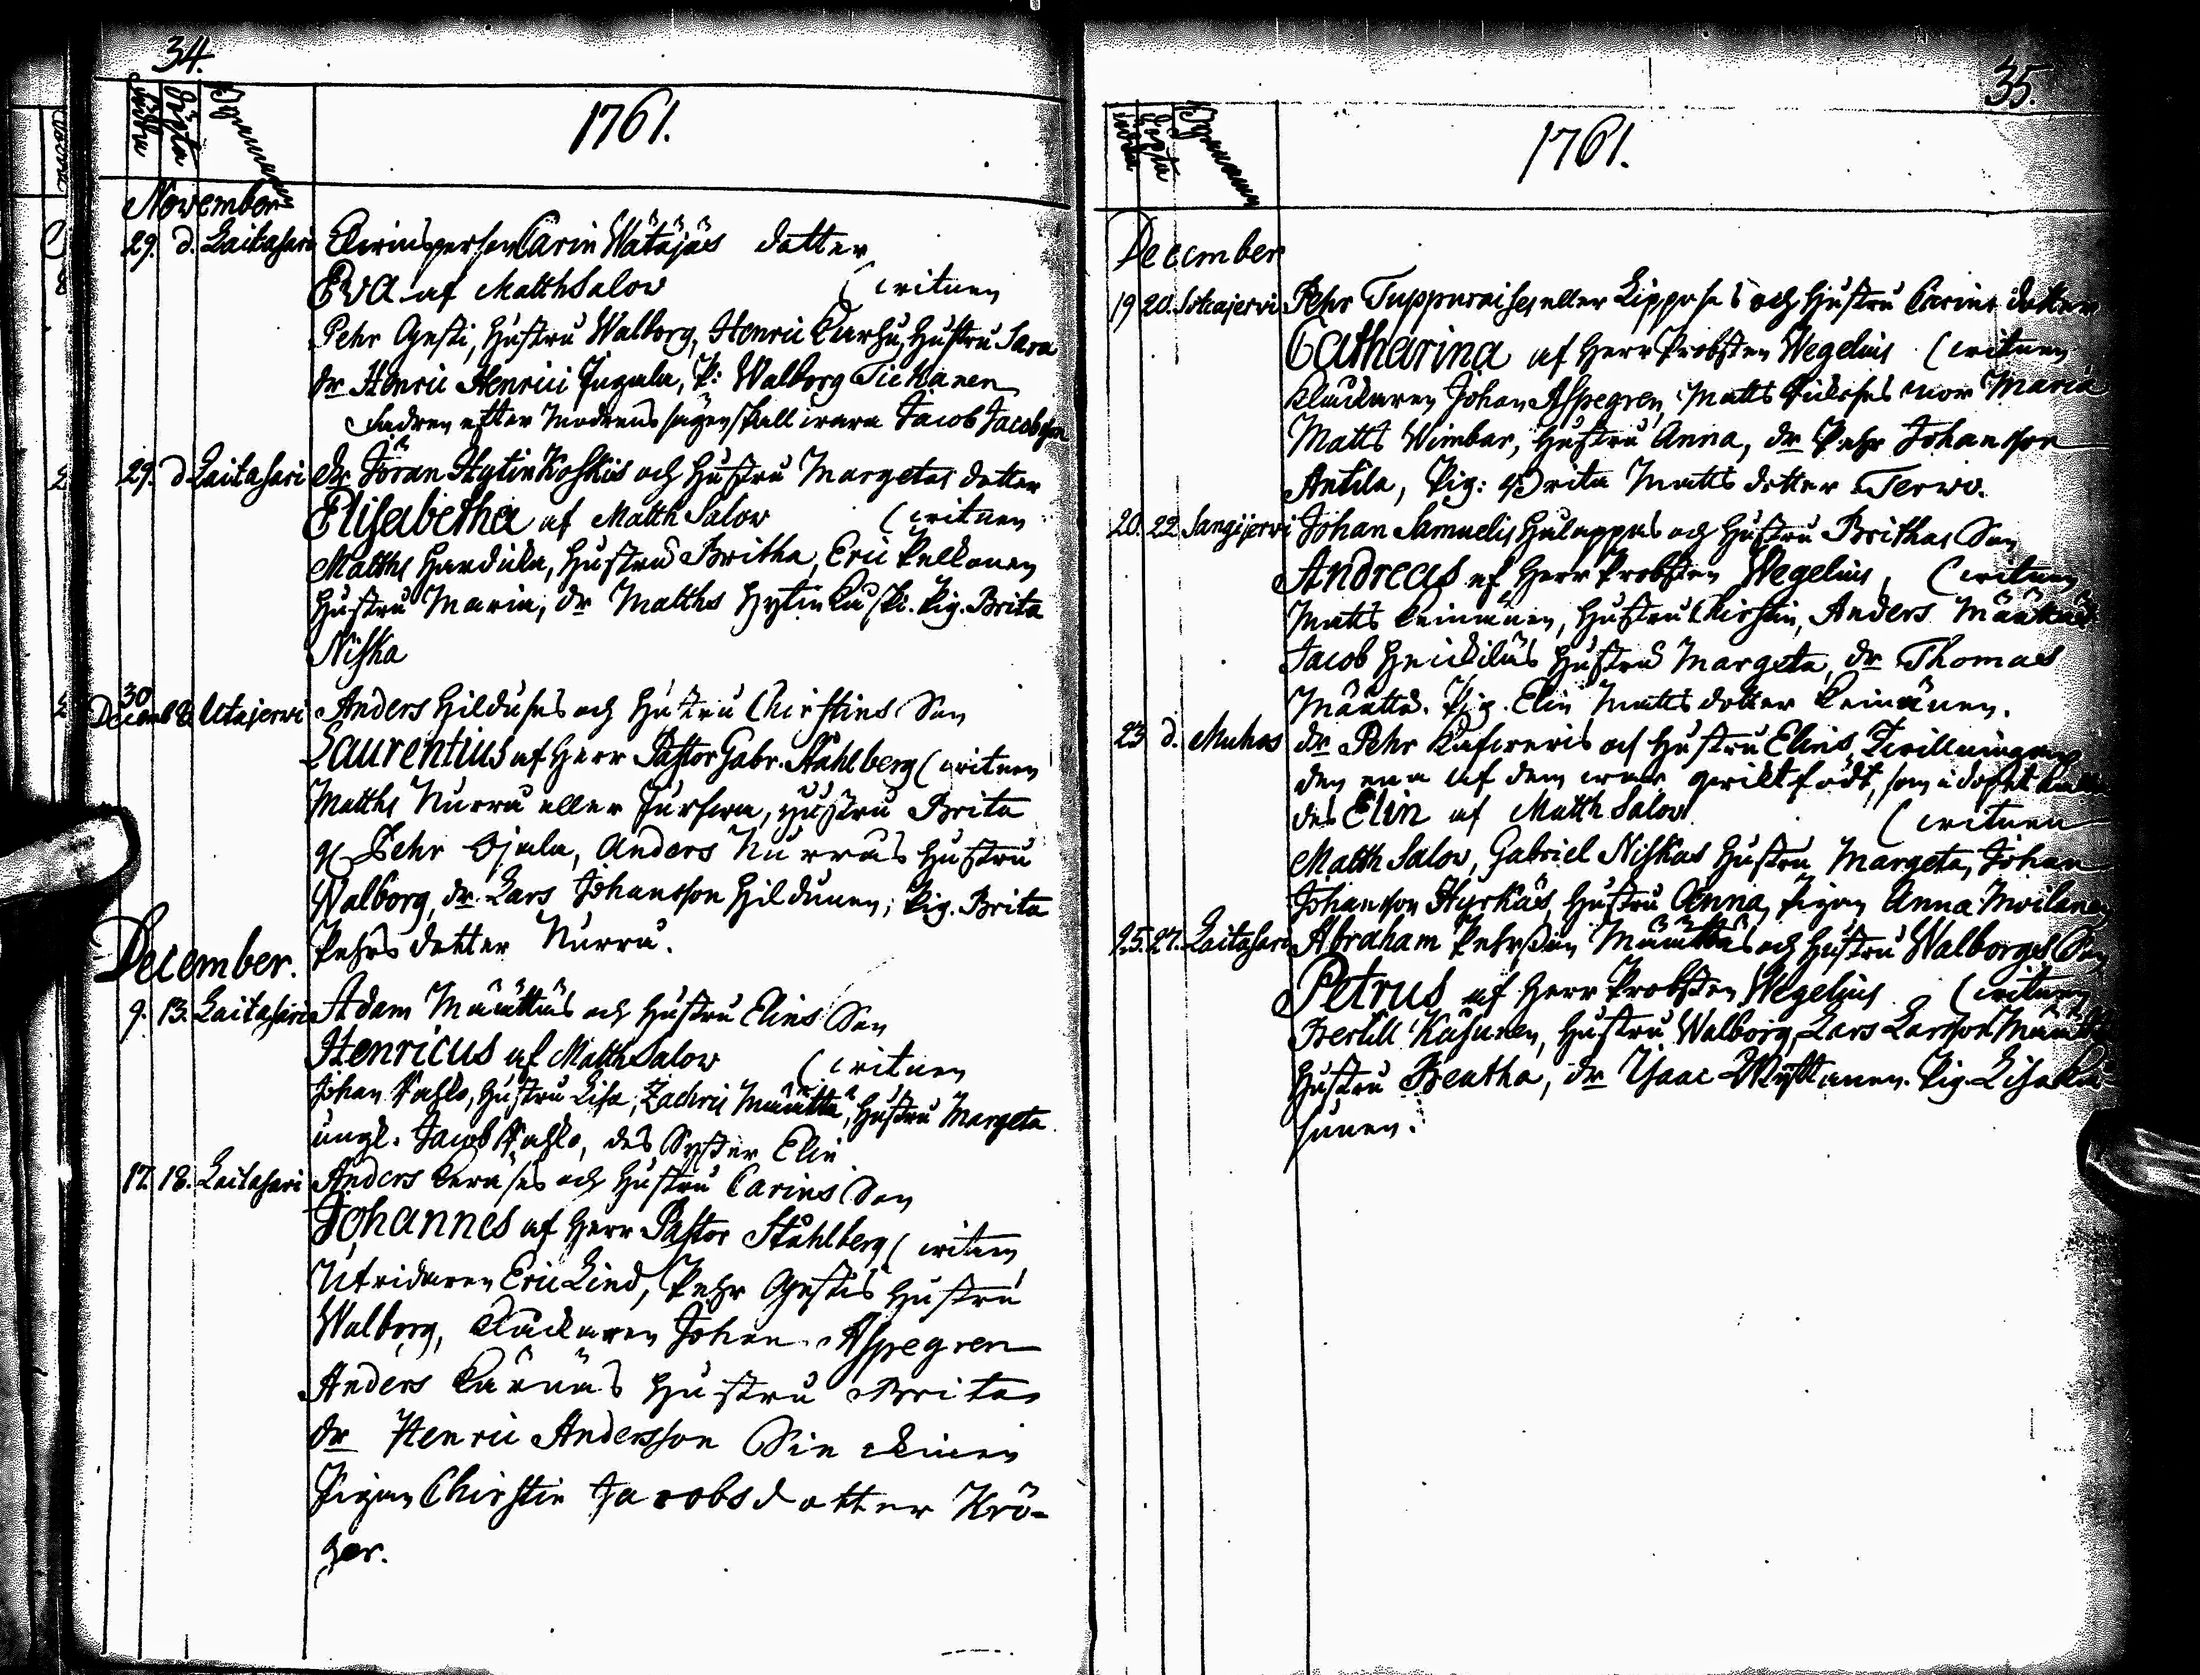 34.
Födde
Döpta
Byenamn
1761.
November
29. d. Laitasari Qvinspersen Carin Wätäjäs dotter
Eva af Matth Salov ( witnen
Pehr Ojesti, Hustru Walborg, Henric Karhu, Hustru Sara
dr Henric Henrici Jugala, P: Walborg Tiekanen
Fadren efter Modrens sägen skall wara Jacob Jacobsson
29. d. Laitasari dr Jöran Hytin Koskis och Hustru Margetas dotter
Elisabetha af Matth Salov ( witnen
Matths Hardicka, Hustru Britha, Eric Pelkonen
Hustru Maria, dr Matths Hytin Kuski. Pig. Brita
Niska
30
Decemb 2. Utajerwi Anders Hildusas och Hustru Chirstins Son
Laurentius af Herr Pastor Gabr. Ståhlberg ( witnen
Matths Nurru eller Jurfwa, Hustru Brita
Pehr Ojala, Anders Nurrus Hustru
Walborg, dr. Lars Johansson Hildunen, Pig. Brita
Pehrs dotter Nurru.
December.
9. 13. Laitasari Adam Määttäs och Hustru Elins Son
Henricus af Matth Salov ( witnen
Johan Pahlo, Hustru Lisa, Zachris Määttä, Hustru Margeta
ungk. Jacob Pahlo, des Syster Elin
17. 18. Laitasari Anders Keräses och Hustru Carins Son
Johannes af Herr Pastor Ståhlberg ( witnen
Utridaren Eric Lind, Pehr Ojestis Hustru
Walborg, Klåckaren Johan Aspegren
Anders Kärnäs Hustru Brita
dr Henric Andersson
Pigan Chirstin Jacobsdotter Krö-
ger.
35.
Födde
Döpta
Byenamn
1761.
December
19 20. Sotkajervi Pehr Tuppuraises eller Lipposes och Hustru Carins dotter
Catharina af Herr Probsten Wegelius ( witnen
Klåckaren Johan Aspegren, Matts mor Maria
Matts Wimbar, Hustru Anna, dr Pehr Johansson
Antila, Pig: Brita Matts dotter Terwo.
20. 22. Sangijerwi Johan Samuelis Hulappas och Hustru Brithas Son
Andreas af Herr Probsten Wegelius, ( witnen
Matts Keinänen, Hustru Chirstin, Anders Määttäs
Jacob Heickiläs Hustru Margeta, dr Thomas
Määttä. Pig. Elin Matts dotter Keinänen.
23 d. Muhos dr Pehr Kafreris och Hustru Elins Twillningar
den ena af dem war qwikt född, som i dopet kalla
des Elin af Matth Salov ( witnen
Matth Salov, Gabriel Niskas Hustru Margeta, Johan
Johansson Hyrkäs, Hustru Anna, Pigan Anna Moilanen
25. 27. Laitasari Abraham Pehrsson Määttäs och Hustru Walborgs Son
Petrus af Herr Probsten Wegelius ( witnen
Bertill Käsunen, Hustru Walborg, Lars Larsson Määttä
Hustru Beatha, dr Isaac Myllänen. Pig. Lisa Kä-
sunen.